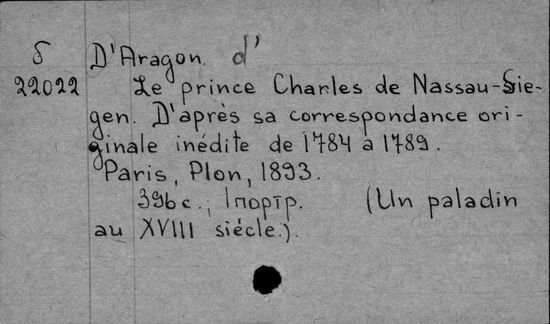 δ D'Aragon. d'
22022 Le prince Charles de Nassau-Sie-
gen. D'après sa correspondance ori-
ginale inédite de 1784 à 1789.
Paris, Plon, 1893.
396 с., 1 портр. (Un paladin
au XVIII siécle.).